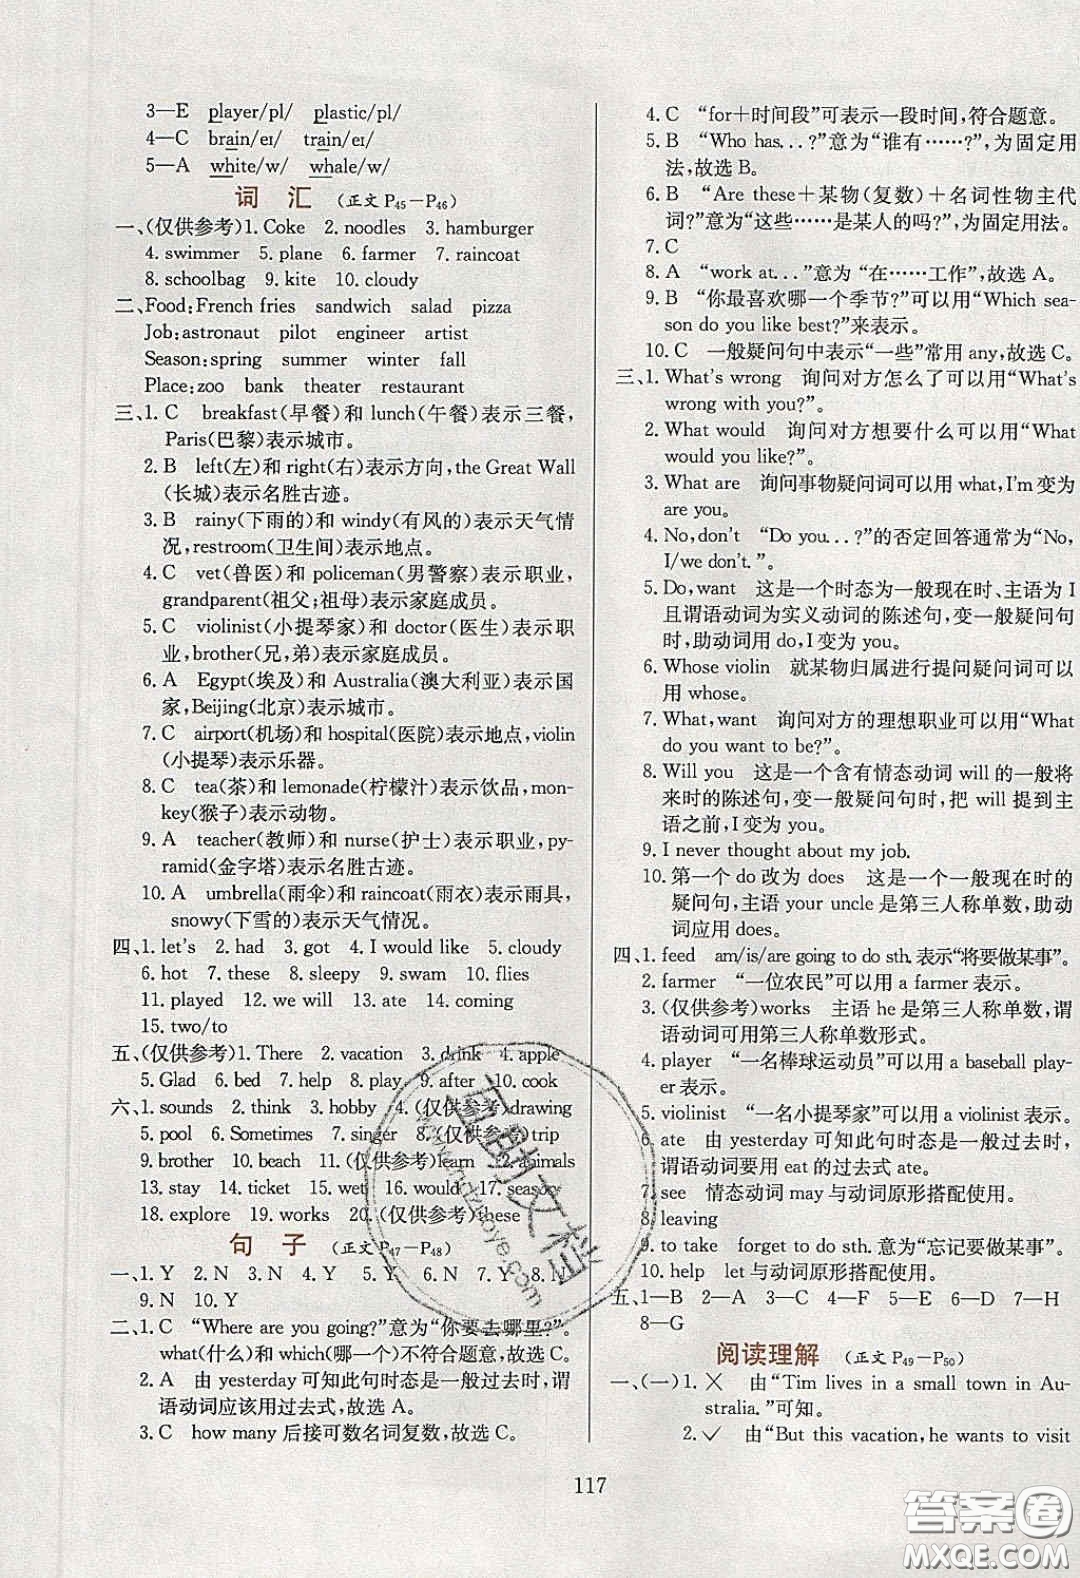 3—E player/pl/ plastic/pl/
4—C brain/eɪ/ train/eɪ/
5—A white/w/ whale/w/
词 汇 (正文 P45－P46)
一、(仅供参考)1. Coke 2. noodles 3. hamburger
4. swimmer 5. plane 6. farmer 7. raincoat
8. schoolbag 9. kite 10. cloudy
二、Food:French fries sandwich salad pizza
Job:astronaut pilot engineer artist
Season:spring summer winter fall
Place:zoo bank theater restaurant
三、1. C breakfast(早餐)和 lunch(午餐)表示三餐,
Paris(巴黎)表示城市。
2. B left(左)和 right(右)表示方向,the Great Wall
(长城)表示名胜古迹。
3. B rainy(下雨的)和 windy(有风的)表示天气情
况,restroom(卫生间)表示地点。
4. C vet(兽医)和 policeman(男警察)表示职业,
grandparent(祖父;祖母)表示家庭成员。
5. C violinist(小提琴家)和 doctor(医生)表示职
业,brother(兄,弟)表示家庭成员。
6. A Egypt(埃及)和 Australia(澳大利亚)表示国
家,Beijing(北京)表示城市。
7. C airport(机场)和 hospital(医院)表示地点,violin
(小提琴)表示乐器。
8. C tea(茶)和 lemonade(柠檬汁)表示饮品,mon-
key(猴子)表示动物。
9. A teacher(教师)和 nurse(护士)表示职业,py-
ramid(金字塔)表示名胜古迹。
10. A umbrella(雨伞)和 raincoat(雨衣)表示雨具,
snowy(下雪的)表示天气情况。
四、1. let's 2. had 3. got 4. I would like 5. cloudy
6. hot 7. these 8. sleepy 9. swam 10. flies
11. played 12. we will 13. ate 14. coming
15. two/to
五、(仅供参考)1. There 2. vacation 3. drink 4. apple
5. Glad 6. bed 7. help 8. play 9. after 10. cook
六、1. sounds 2. think 3. hobby 4. (仅供参考)drawing
5. pool 6. Sometimes 7. singer 8. (仅供参考)trip
9. brother 10. beach 11. (仅供参考)learn 12. animals
13. stay 14. ticket 15. wet 16. would 17. season
18. explore 19. works 20. (仅供参考)these
句 子 (正文 P47－P48)
一、1. Y 2. N 3. N 4. Y 5. Y 6. N 7. Y 8. N
9. N 10. Y
二、1. C “Where are you going?”意为“你要去哪里?”。
what(什么)和 which(哪一个)不符合题意,故选C。
2. A 由 yesterday 可知此句时态是一般过去时,谓
语动词应该用过去式,故选 A。
3. C how many 后接可数名词复数,故选 C。
4. C “for＋时间段”可表示一段时间,符合题意。
5. B “Who has...?”意为“谁有……?”,为固定用
法,故选 B。
6. B “Are these＋某物(复数)＋名词性物主代
词?”意为“这些……是某人的吗?”,为固定用法。
7. C
8. A “work at...”意为“在……工作”,故选 A。
9. B “你最喜欢哪一个季节?”可以用“Which sea-
son do you like best?”来表示。
10. C 一般疑问句中表示“一些”常用 any,故选 C。
三、1. What's wrong 询问对方怎么了可以用“What's
wrong with you?”。
2. What would 询问对方想要什么可以用“What
would you like?”。
3. What are 询问事物疑问词可以用 what,I'm变为
are you。
4. No,don't “Do you...?”的否定回答通常为“No,
I/we don't.”。
5. Do,want 这是一个时态为一般现在时、主语为 I
且谓语动词为实义动词的陈述句,变一般疑问句
时,助动词用 do,I 变为 you。
6. Whose violin 就某物归属进行提问疑问词可以
用 whose。
7. What,want 询问对方的理想职业可以用“What
do you want to be?”。
8. Will you 这是一个含有情态动词 will 的一般将
来时的陈述句,变一般疑问句时,把 will 提到主
语之前,I 变为 you。
9. I never thought about my job.
10. 第一个 do 改为 does 这是一个一般现在时的
疑问句,主语 your uncle 是第三人称单数,助动
词应用 does。
四、1. feed am/is/are going to do sth. 表示“将要做某事”。
2. farmer “一位农民”可以用 a farmer 表示。
3. (仅供参考)works 主语 he 是第三人称单数,谓
语动词可用第三人称单数形式。
4. player “一名棒球运动员”可以用 a baseball play-
er 表示。
5. violinist “一名小提琴家”可以用 a violinist 表示。
6. ate 由 yesterday 可知此句时态是一般过去时,
谓语动词要用 eat 的过去式 ate。
7. see 情态动词 may 与动词原形搭配使用。
8. leaving
9. to take forget to do sth. 意为“忘记要做某事”。
10. help let 与动词原形搭配使用。
五、1—B 2—A 3—C 4—F 5—E 6—D 7—H
8—G
阅读理解 (正文 P49－P50)
一、(一)1. ✕ 由“Tim lives in a small town in Au-
stralia.”可知。
2. ✓ 由“But this vacation,he wants to visit
117
答案圈
MXQE.COM